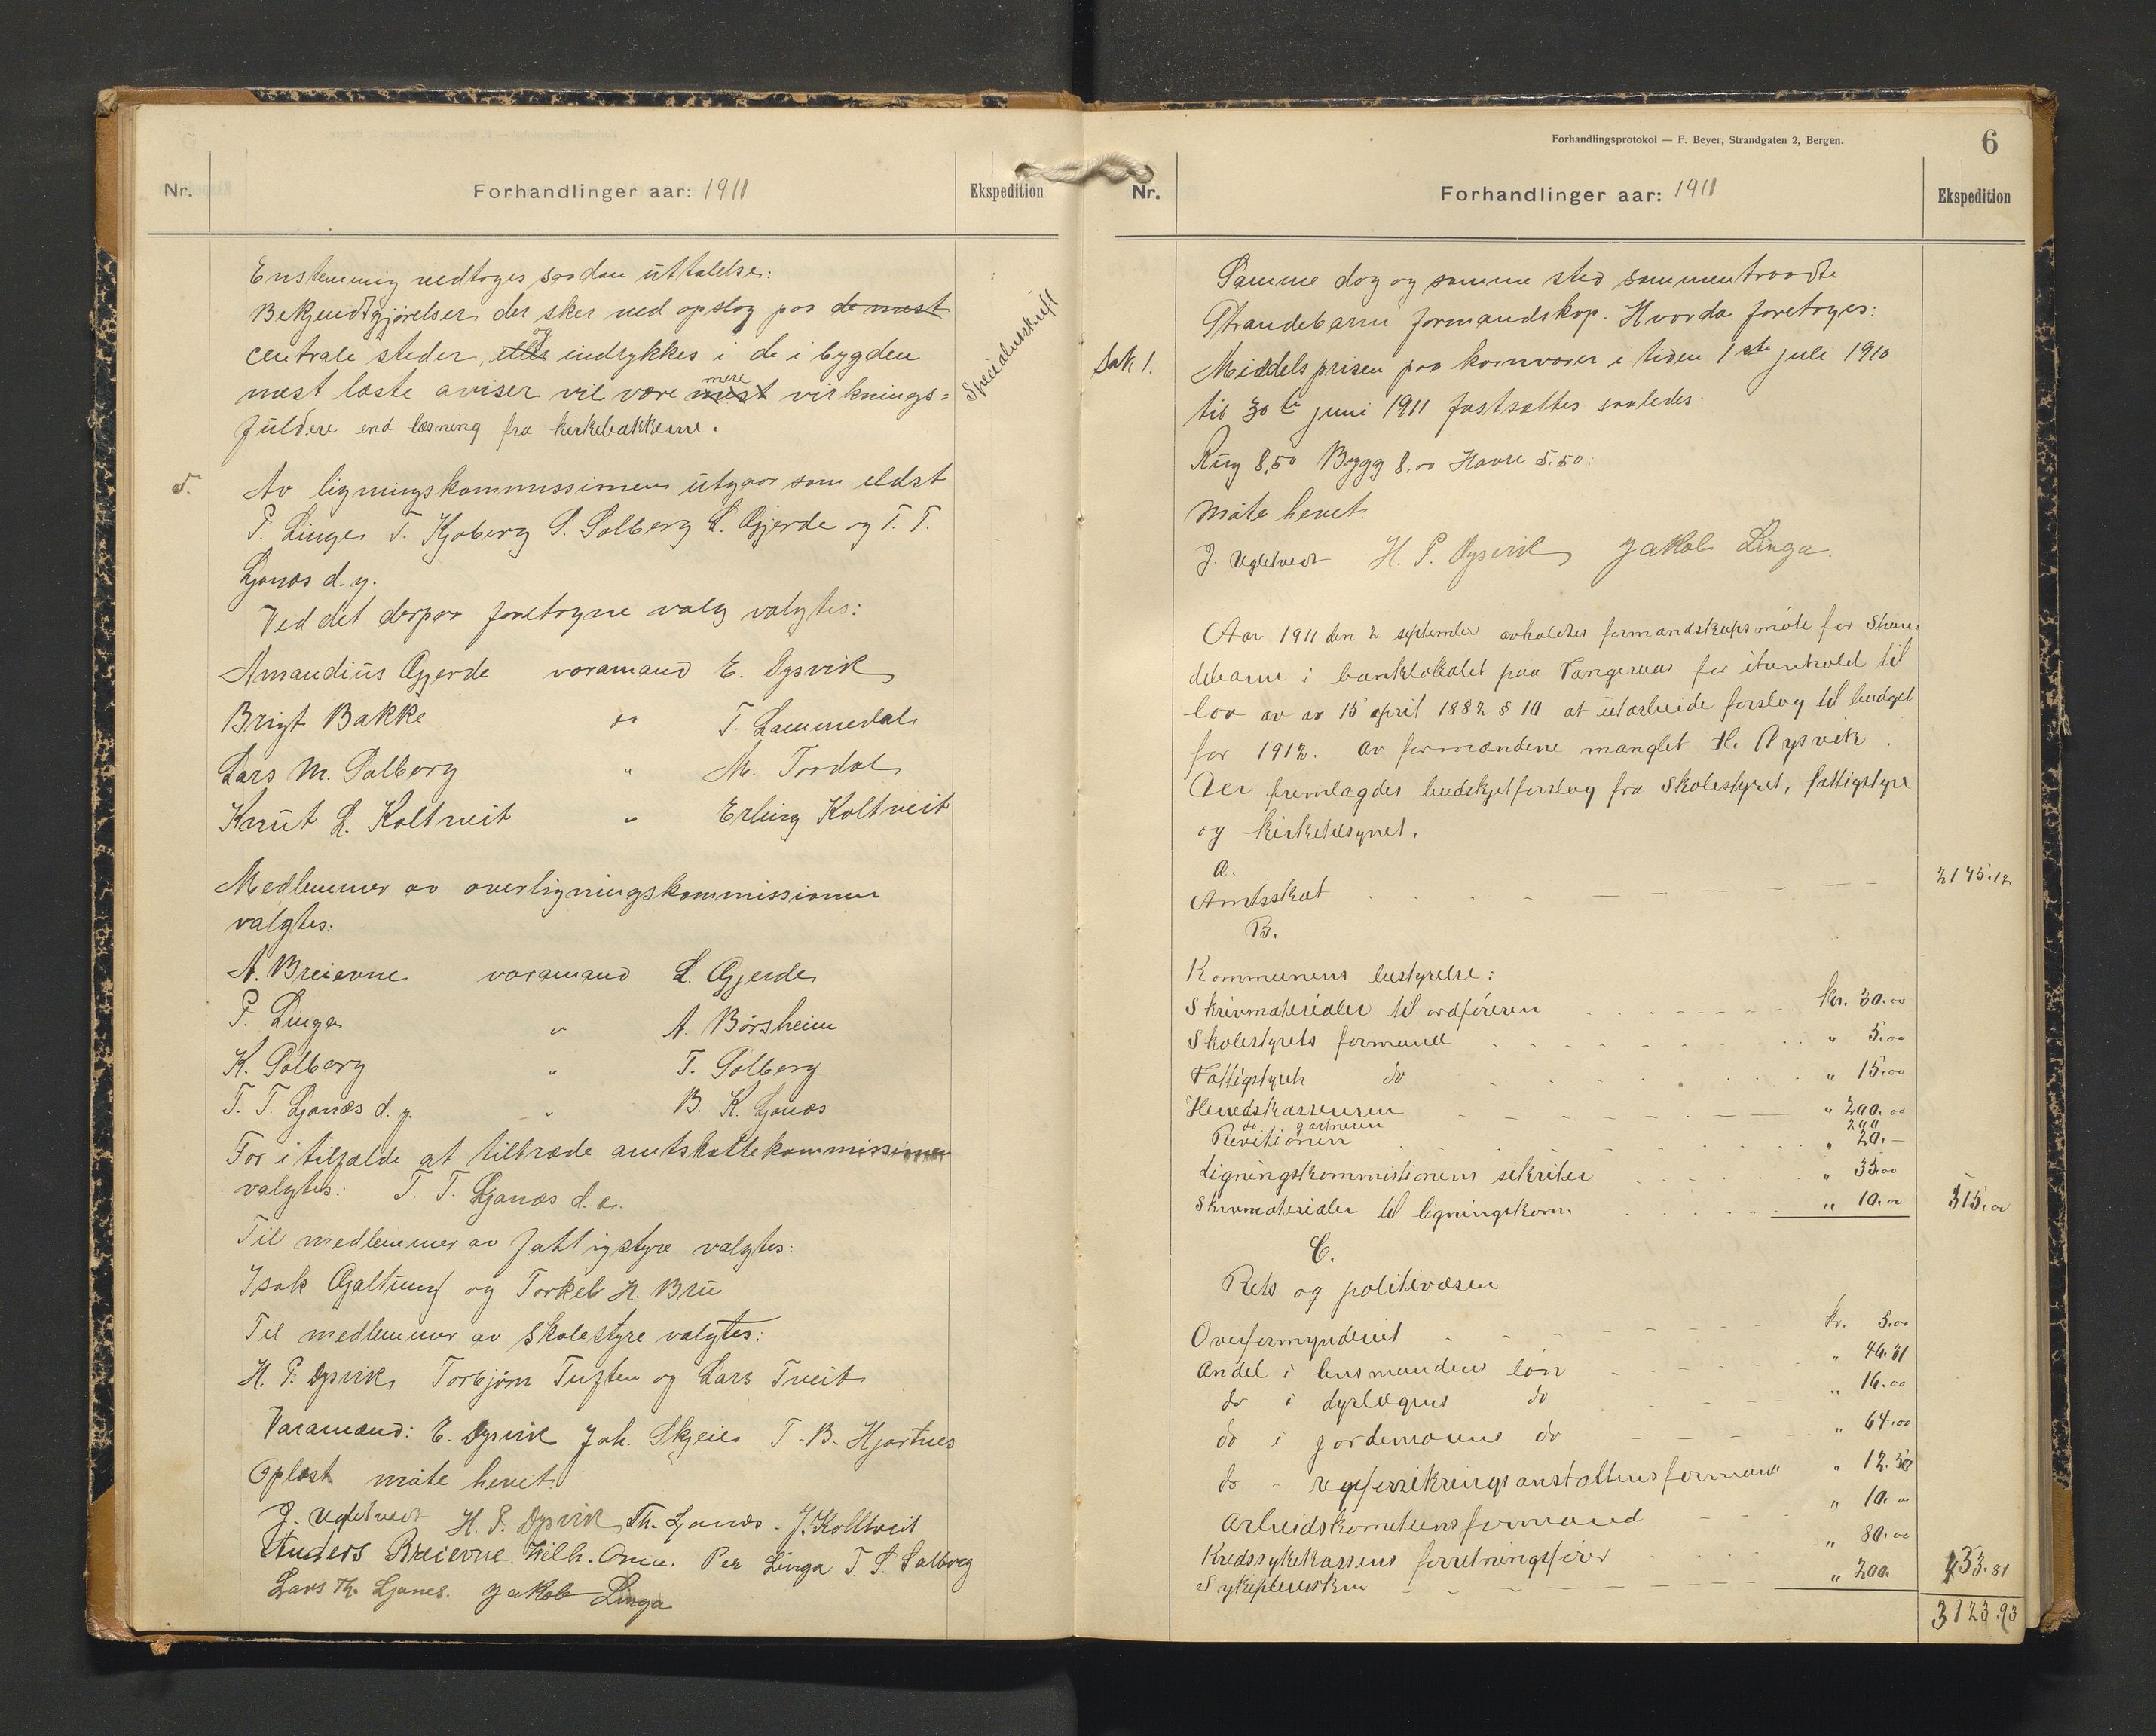 Nr.
Forhandlinger aar: 1911
Ekspedition
Enstemmig vedtoges saadan uttalelse:
Bekjendtgjørelser der sker ved opslag paa de mest
centrale steder, eller og indrykkes i de i bygden
mest læste aviser vil være mest mere virknings=
fuldere end læsning fra kirkebakkerne.
Specialutskrift
5.
Av ligningskommissionen utgaar som eldst
P. Linge T. Kjoberg S. Solberg L. Gjerde og T. T.
Ljonæs d. y.
Ved det derpaa foretagne valg valgtes:
Amandius Gjerde varamand E. Dysvik
Brigt Bakke do T. Lammedal
Lars M. Solberg " M. Tordal
Knut L. Koltveit " Erling Koltveit
Medlemmer av overligningskommissionen
valgtes:
A. Breievne varamand L. Gjerde
P. Linga " A. Børsheim
K. Solberg " T. Solberg
T. T. Ljonæs d. y. " B. K. Ljonæs
For i tilfælde at tiltræde amtskattekommissionen
valgtes: T. T. Ljonæs d. e.
Til medlemmer av fattigstyre valgtes:
Isak Gjeltung og Torkel H. Bru
Til medlemmer av skolestyre valgtes:
H. P. Dysvik, Torbjørn Tuften og Lars Tveit
Varamænd: E. Dysvik Joh. Skjeie T. B. Hjartnes
Oplæst møte hevet.
J. Ugletveit H. P. Dysvik Th. Ljonæs. J. Kolltveit
Anders Breievne. Vilh. Oma. Per Linga T. S. Solberg
Lars Th. Ljones. Jakob Linga
Forhandlingsprotokol — F. Beyer, Strandgaten 2, Bergen.
6
Nr.
Forhandlinger aar: 1911
Ekspedition
Samme dag og samme sted sammentraadte
Strandebarm formandskap. Hvorda foretoges:
Sak 1.
Middelsprisen paa kornvarer i tiden 1ste juli 1910
til 30te juni 1911 fastsættes saaledes
Rug 8,50 Bygg 8,00 Havre 5.50.
Møte hevet.
J. Ugletveit H. P. Dysvik Jakob Linga.
Aar 1911 den 2 september avholdtes formandskapsmøte for Stran-
debarm i banklokalet paa Tangeraas for i henhold til
lov av av 15 april 1882 § 10 at utarbeide forslag til budget
for 1912. Av formændene manglet H. Dysvik.
Der fremlagdes budsjetforslag fra skolestyret, fattigstyre
og kirketilsynet.
A.
Amtsskat 2175.12
B.
Kommunens bestyrelse:
Skrivmaterialer til ordføreren kr. 30.00
Skolestyrets formand " 5.00
Fattigstyrets do " 15.00
Herredskassereren " 200.00
Revisionen " 20.—
Ligningskommisionens sekritær " 35.00
Skrivmaterialer til ligningskom. " 10.00 315.00
C.
Rets og politivæsen
Overformynderiet kr. 3.00
Andel i lensmandens løn " 46.31
do i dyrlægens do " 16.00
do i jordemorens do " 64.00
do - forsikringsanstaltens formand " 12.50
Arbeidskomiteens formand " 10.00
Kredssykekassens forretningsfører " 80.00
Sykepleiersken " 200. 433.81
3123.93